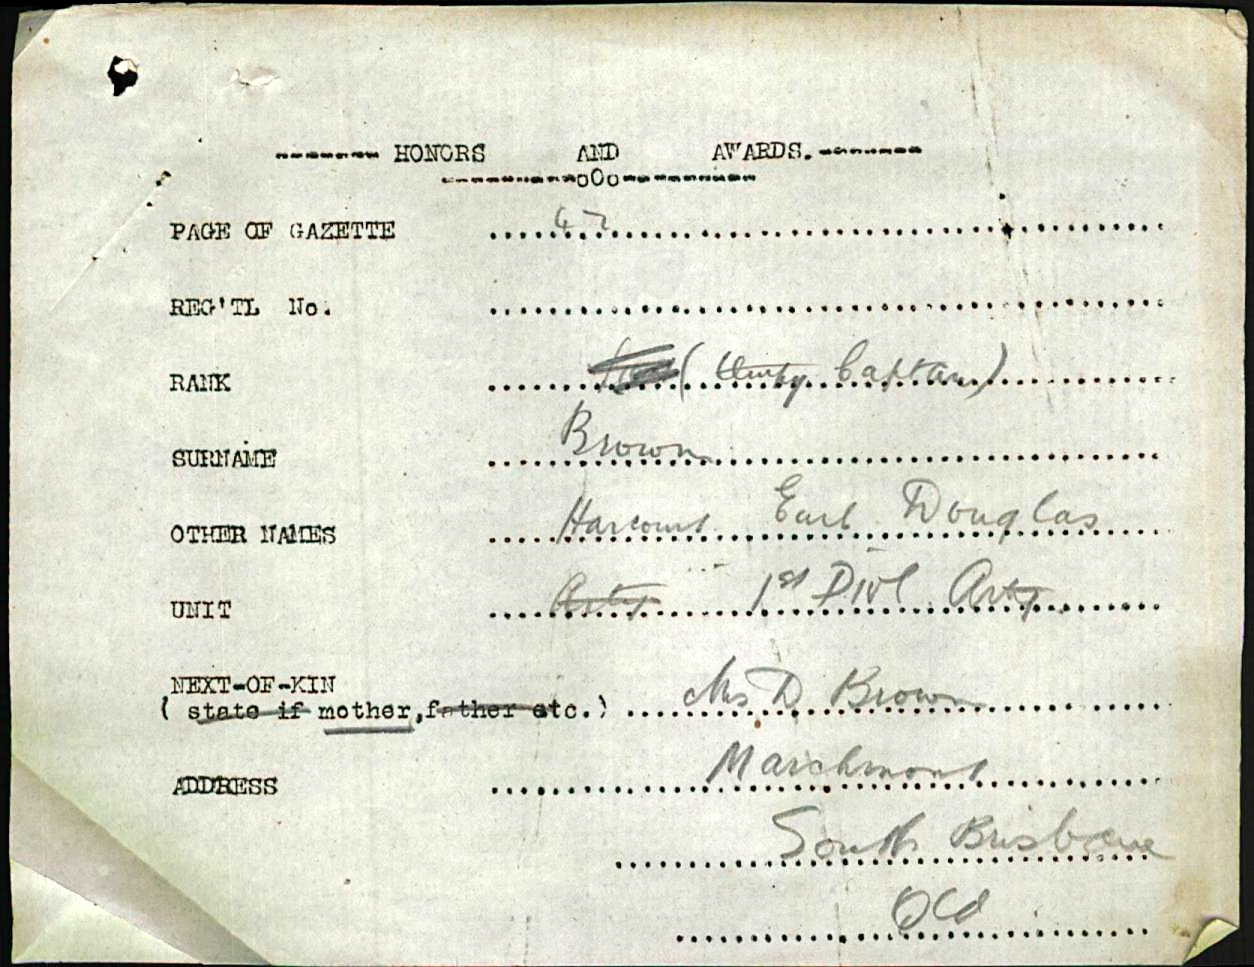 ------- HONORS AND AWARDS.-------
----------oOo----------
PAGE OF GAZETTE 47
REG'TL No.
RANK (Temp Captain)
SURNAME Brown
OTHER NAMES Harcourt Earl Douglas
UNIT Arty 1st Divl Arty
NEXT-OF-KIN
( state if mother,father etc.) Mrs D Brown
ADDRESS Marchmont
South Brisbane
Qld